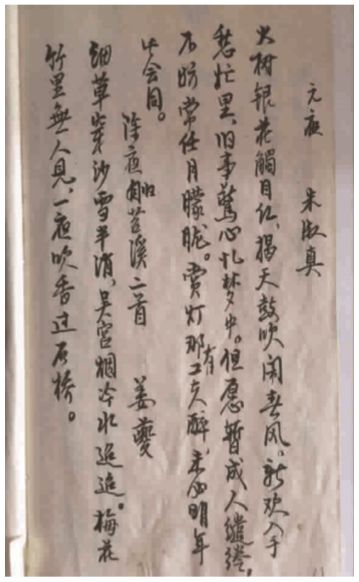 元夜 朱淑真
火树银花觸目红,揭天鼓吹闹春风。新欢入手
愁忙里,旧事驚心忆梦中。但愿暫成人缱绻,
不妨常任月朦胧。赏灯那有工夫醉,未必明年
此会同。
除夜归苕溪二首 姜夔
细草穿沙雪半消,吴宫烟冷水迢迢。梅花
竹里無人见,一夜吹香过石桥。